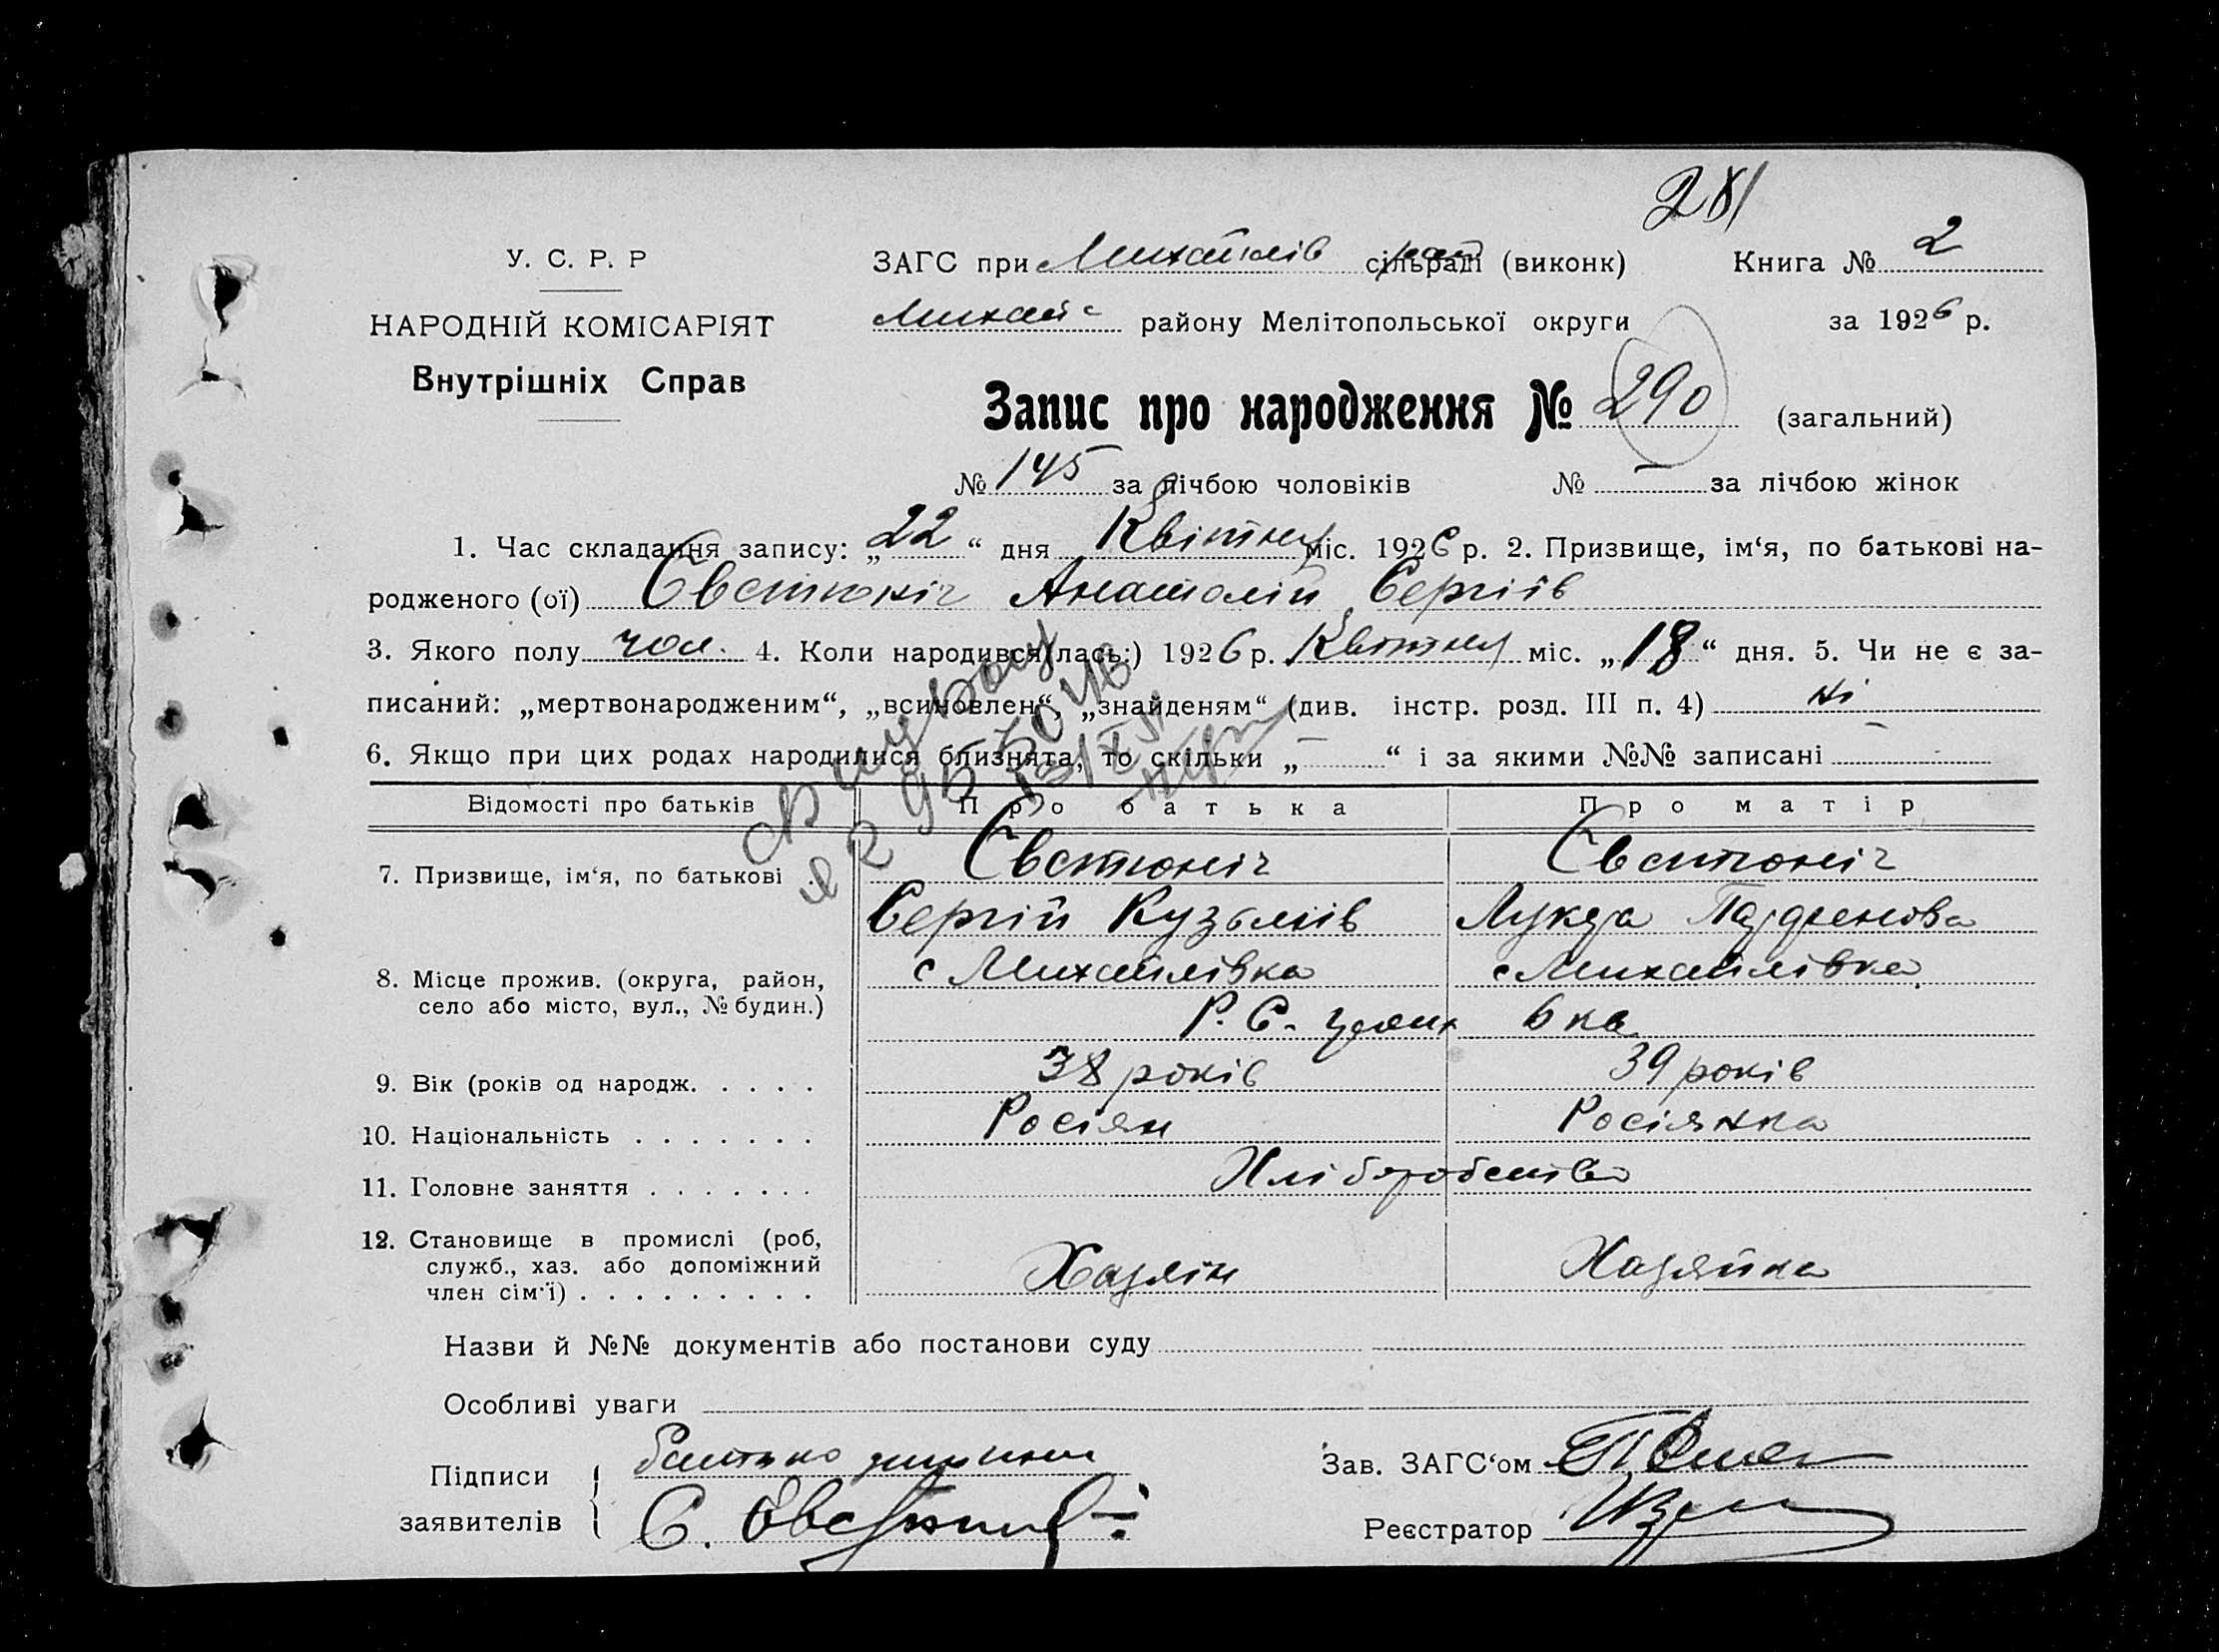 281
У. С. Р. Р
ЗАГС при Михайлів сільраді (виконк) Книга № 2
НАРОДНІЙ КОМІСАРІЯТ
Михай району Мелітопольської округи за 1926 р.
Внутрішніх Справ
Запис про народження № 290 (загальний)
№ 145 за лічбою чоловіків № — за лічбою жінок
1. Час складання запису: „22“ дня Квітня міс. 1926 р. 2. Призвище, ім‘я, по батькові на-
родженого (ої) Євстюніч Анатолій Сергіїв
3. Якого полу чол. 4. Коли народився(лась:) 1926 р. Квітня міс. „18“ дня. 5. Чи не є за-
писаний: „мертвонародженим“, „всиновлен“, „знайденям“ (див. інстр. розд. III п. 4) ні
6. Якщо при цих родах народилися близнята, то скільки „—“ і за якими №№ записані —
Відомості про батьків Про батька Про матір
7. Призвище, ім‘я, по батькові Євстюніч Євстюніч
Сергій Кузьмів Лукер'я
8. Місце прожив. (округа, район, с Михайлівка с Михайлівка
село або місто, вул., № будин.) Р. С. 6 кв
9. Вік (років од народж. . . . . 38 років 39 років
10. Національність . . . . . . . Росіян Росіянка
11. Головне заняття . . . . . . . Хліборобство
12. Становище в промислі (роб,
служб., хаз. або допоміжний Хазяїн Хазяйка
член сім‘ї) . . . . . . . . .
Назви й №№ документів або постанови суду
Особливі уваги
Підписи батько дитини Зав. ЗАГС‘ом
заявителів С. Євстюніч Реєстратор